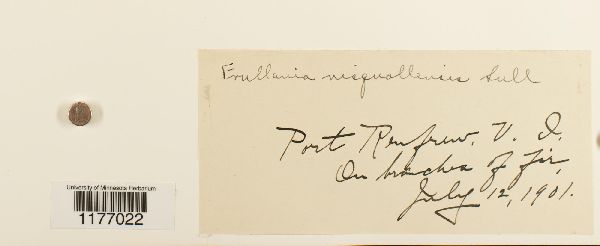 Frullania nisquallensis Sull
Port Renfrew. V. I.
On branches of fir,
July 12, 1901.
University of Minnesota Herbarium
1177022